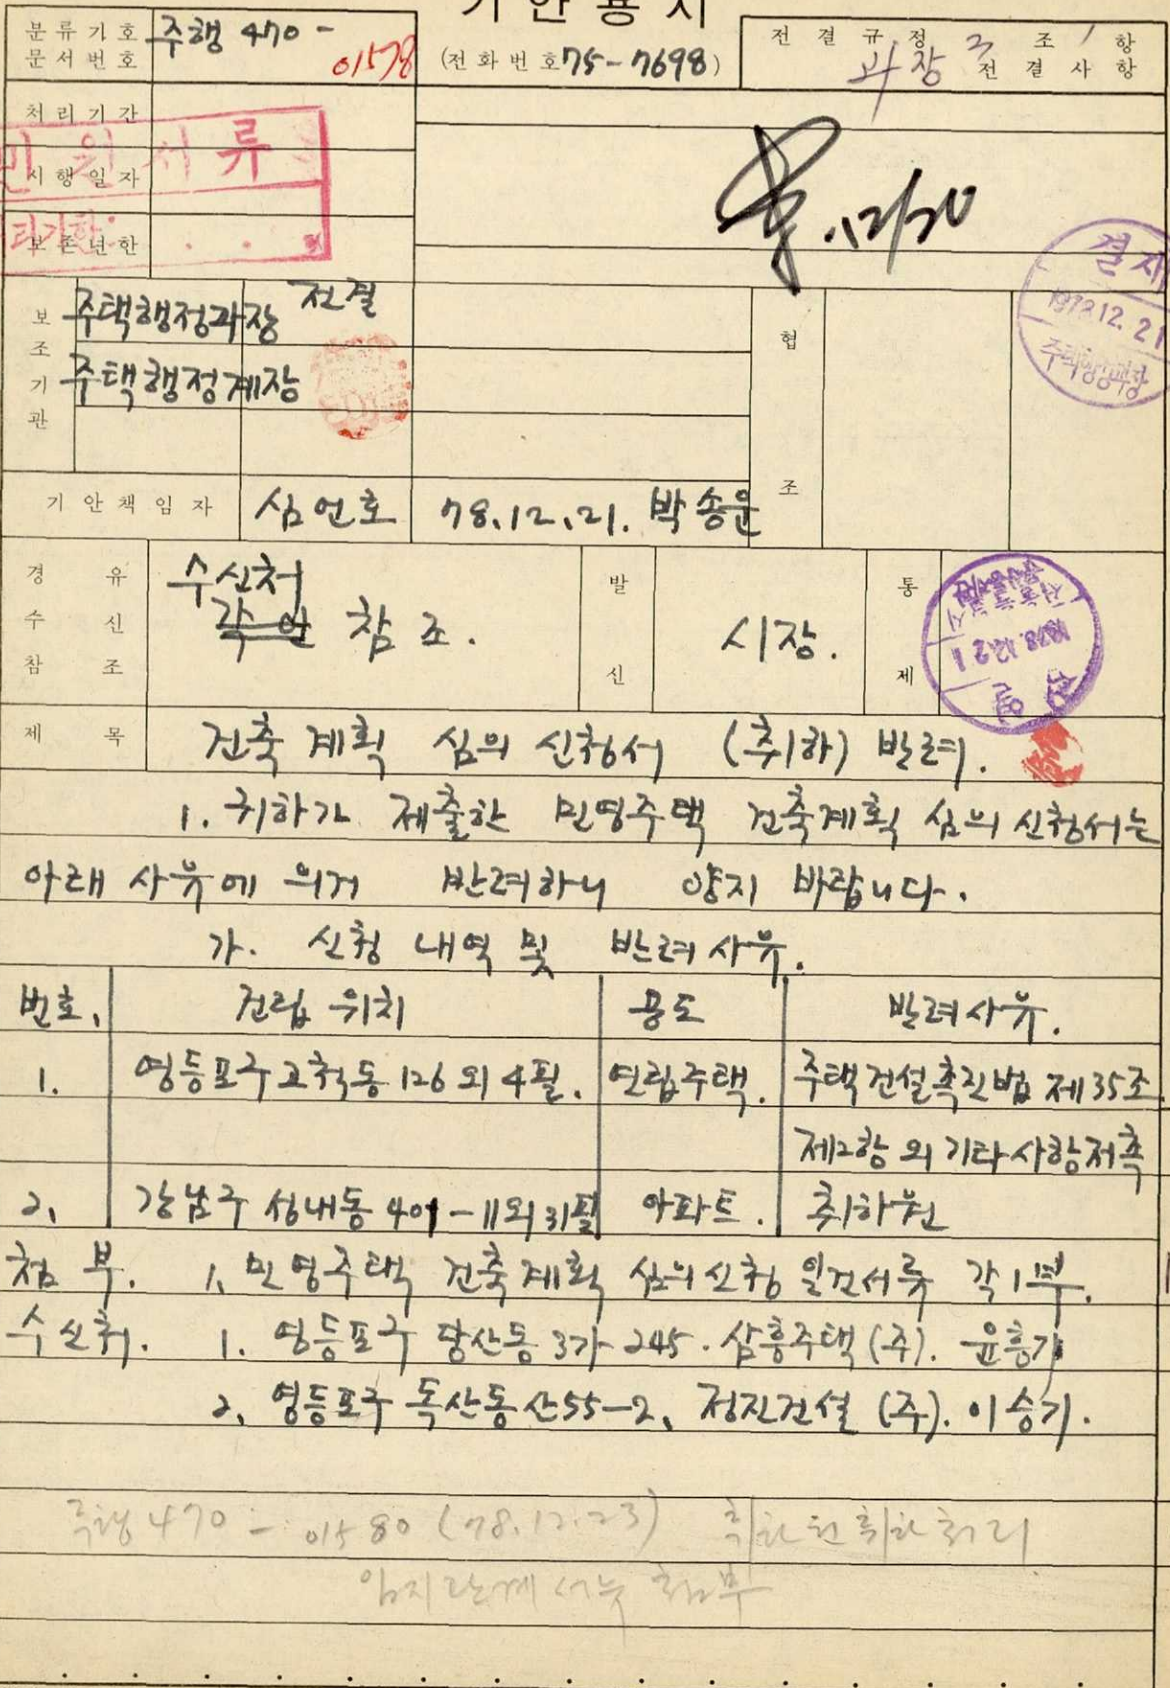 기안용지
분류기호 문서번호 주행 470 - 01578
(전화번호 75-7698)
전결규정 3 조 1 항
과장 전결사항
처리기간
민원서류
시행일자
보존년한
12/20
결재
1978.12.21
주택행정과장
보조기관
주택행정과장 전결
주택행정계장
협조
기안책임자 심언호 78.12.21. 박송운
경유 수신 참조
수신처
각 안 참조.
발신 시장.
통제
1978.12.21
제목 건축계획 심의 신청서 (취하) 반려.
1. 귀하가 제출한 민영주택 건축계획 심의 신청서는
아래 사유에 의거 반려하니 양지 바랍니다.
가. 신청 내역 및 반려사유.
번호. 건립 위치 용도 반려사유.
1. 영등포구 고척동 126 외 4필. 연립주택. 주택건설촉진법 제35조
제2항 외 기타사항저촉
2. 강남구 성내동 401-11외 31필 아파트. 취하원
첨부. 1. 민영주택 건축계획 심의신청 일건서류 각1부.
수신처. 1. 영등포구 당산동 3가 245. 삼흥주택 (주). 윤흥
2. 영등포구 독산동 산55-2. 정진건설 (주). 이승기.
주행 470 - 01580 (78.12.23) 취하원 취하처리
첨부